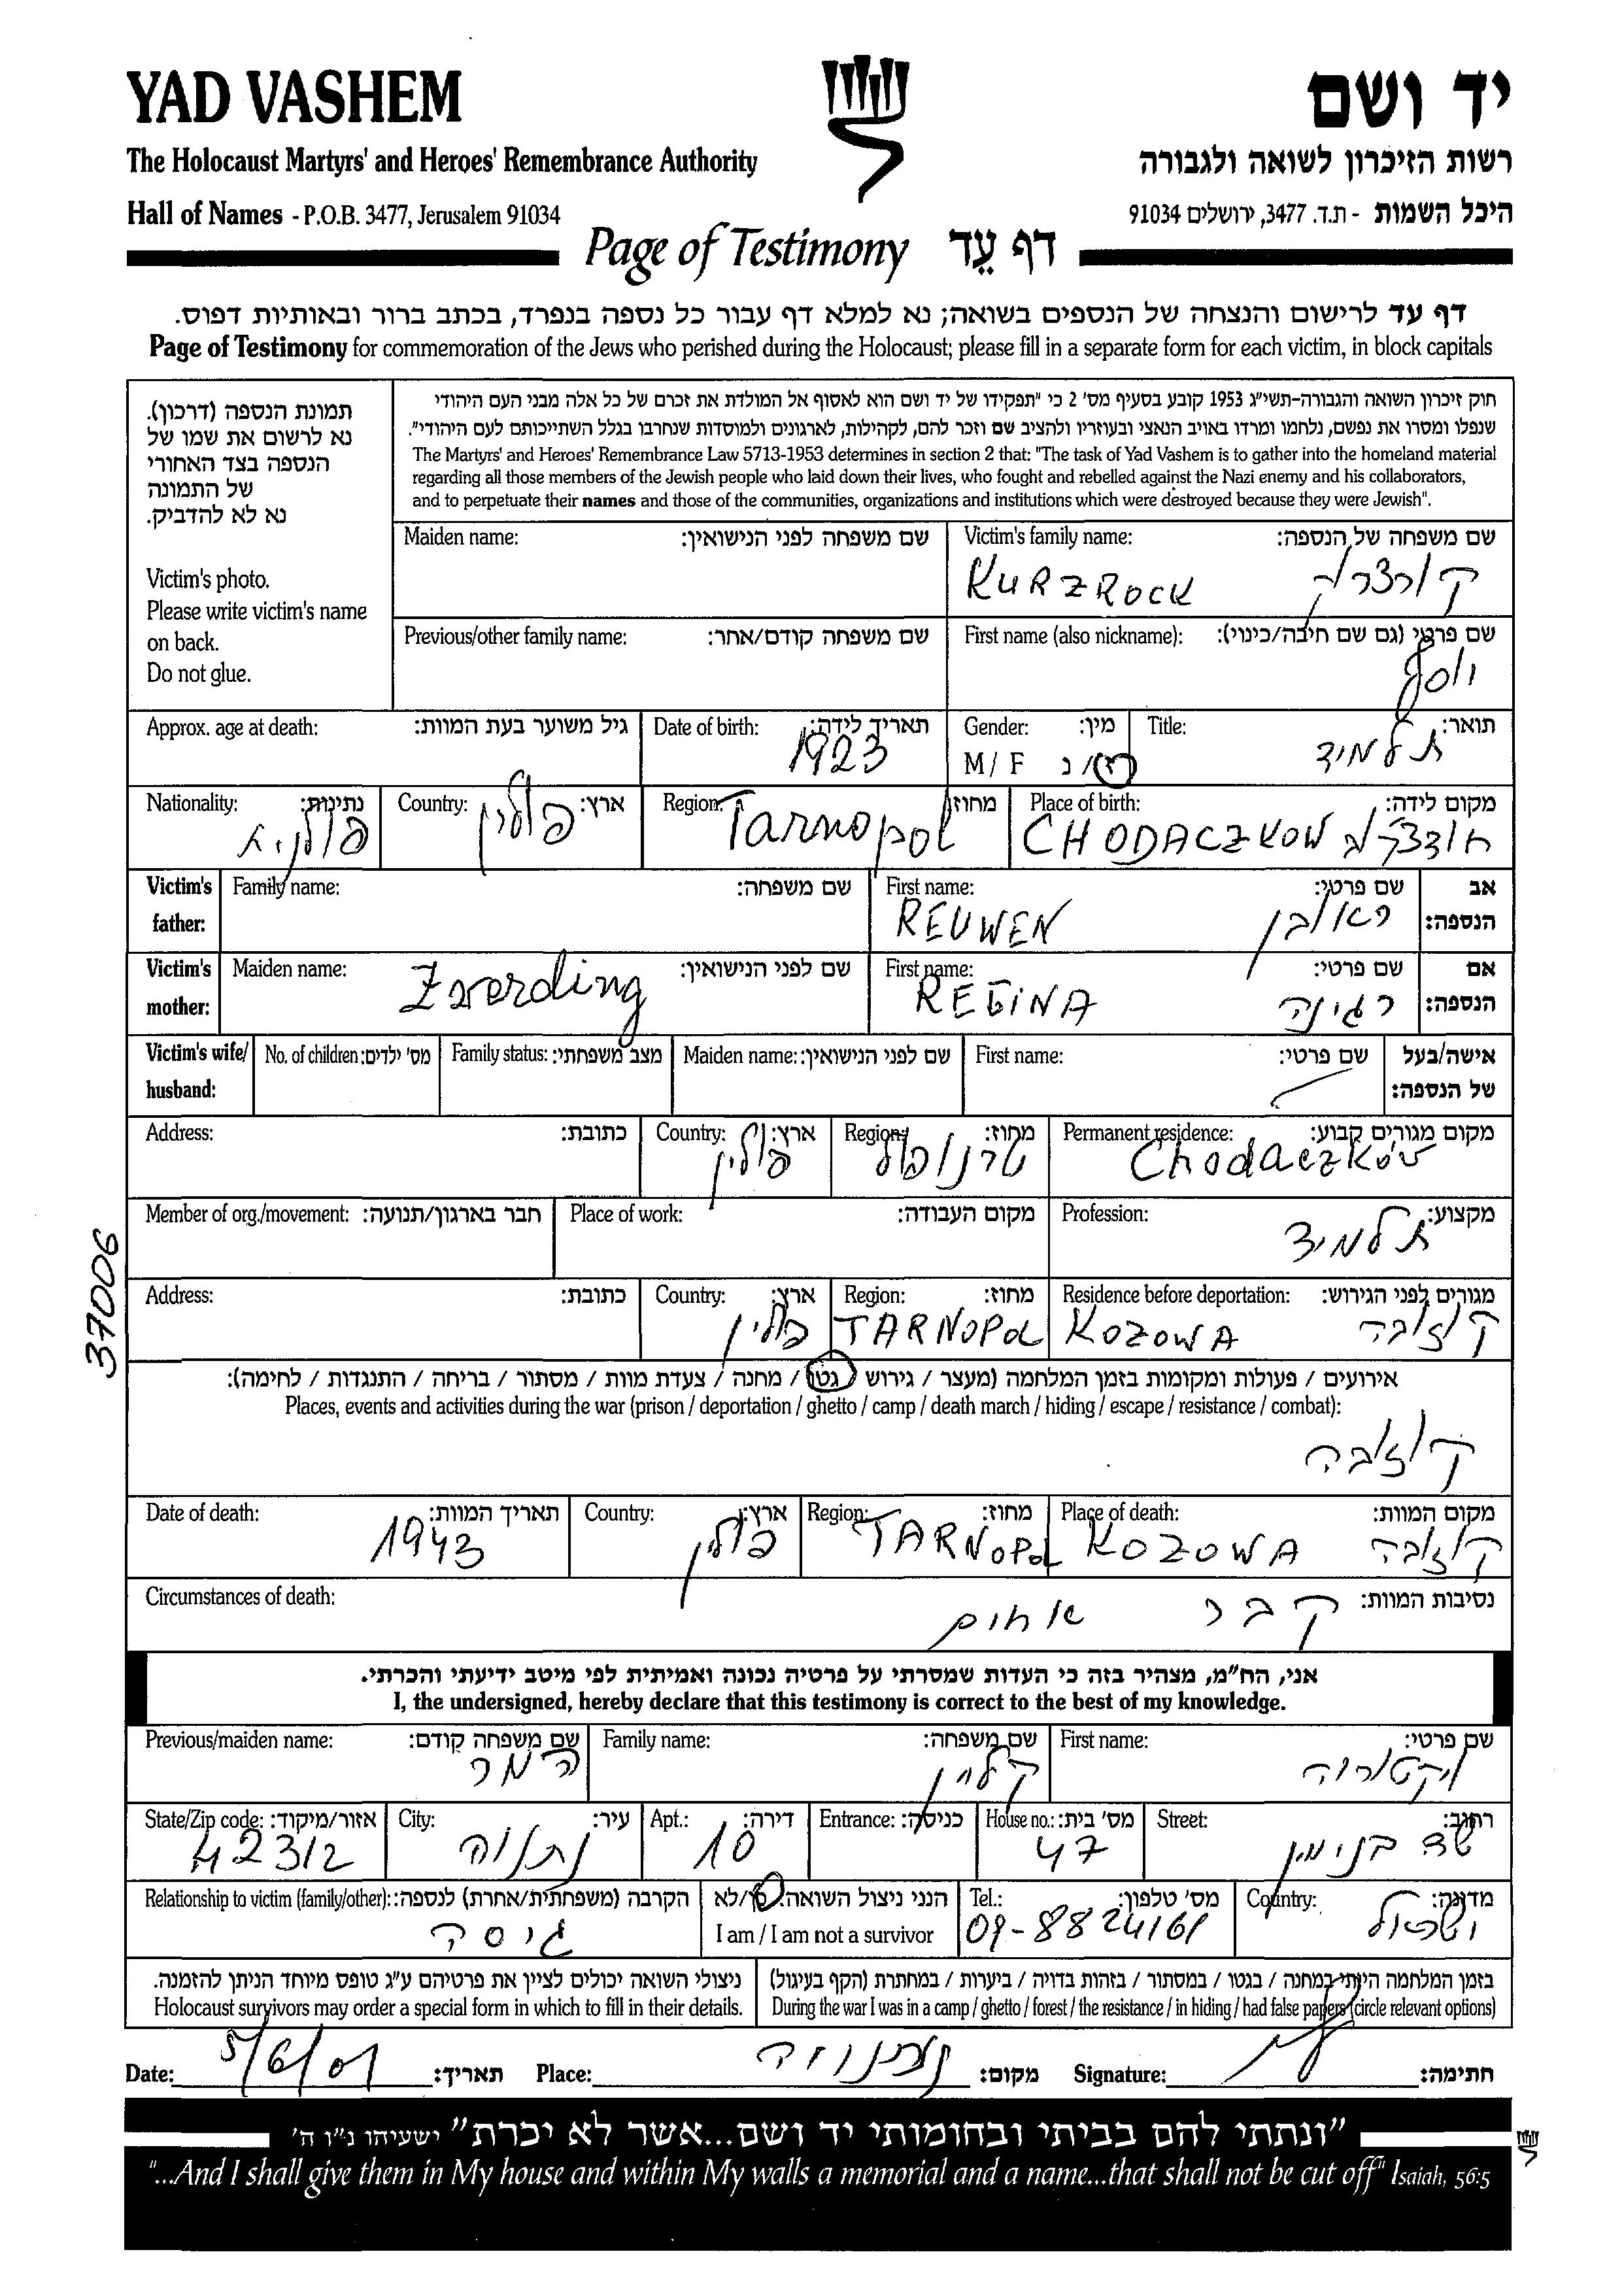 YAD VASHEM
יד ושם
The Holocaust Martyrs' and Heroes' Remembrance Authority
רשות הזיכרון לשואה ולגבורה
Hall of Names - P.O.B. 3477, Jerusalem 91034
היכל השמות - ת.ד. 3477, ירושלים 91034
Page of Testimony דף עֵד
דף עד לרישום והנצחה של הנספים בשואה; נא למלא דף עבור כל נספה בנפרד, בכתב ברור ובאותיות דפוס.
Page of Testimony for commemoration of the Jews who perished during the Holocaust; please fill in a separate form for each victim, in block capitals
תמונת הנספה (דרכון).
נא לרשום את שמו של
הנספה בצד האחורי
של התמונה
נא לא להדביק.
Victim's photo.
Please write victim's name
on back.
Do not glue.
חוק זיכרון השואה והגבורה-תשי"ג 1953 קובע בסעיף מס' 2 כי "תפקידו של יד ושם הוא לאסוף אל המולדת את זכרם של כל אלה מבני העם היהודי
שנפלו ומסרו את נפשם, נלחמו ומרדו באויב הנאצי ובעוזריו ולהציב שם וזכר להם, לקהילות, לארגונים ולמוסדות שנחרבו בגלל השתייכותם לעם היהודי".
The Martyrs' and Heroes' Remembrance Law 5713-1953 determines in section 2 that: "The task of Yad Vashem is to gather into the homeland material
regarding all those members of the Jewish people who laid down their lives, who fought and rebelled against the Nazi enemy and his collaborators,
and to perpetuate their names and those of the communities, organizations and institutions which were destroyed because they were Jewish".
Maiden name: שם משפחה לפני הנישואין: Victim's family name: שם משפחה של הנספה:
KURZROCK קורצרוק
Previous/other family name: שם משפחה קודם/אחר: First name (also nickname): שם פרטי (גם שם חיבה/כינוי):
יוסף
Approx. age at death: גיל משוער בעת המוות: Date of birth: תאריך לידה: Gender: מין: Title: תואר:
1923 M / F ז/נ תלמיד
Nationality: נתינות: Country: ארץ: Region: מחוז: Place of birth: מקום לידה:
פולנית פולין Tarnopol CHODACZKOW חודצקוב
Victim's father: Family name: שם משפחה: First name: שם פרטי: אב הנספה:
REUWEN ראובן
Victim's mother: Maiden name: שם לפני הנישואין: First name: שם פרטי: אם הנספה:
Zwerding REGINA רגינה
Victim's wife/ husband: No. of children: מס' ילדים: Family status: מצב משפחתי: Maiden name: שם לפני הנישואין: First name: שם פרטי: אישה/בעל של הנספה:
Address: כתובת: Country: ארץ: Region: מחוז: Permanent residence: מקום מגורים קבוע:
פולין טרנופול Chodaczków
Member of org./movement: חבר בארגון/תנועה: Place of work: מקום העבודה: Profession: מקצוע:
תלמיד
Address: כתובת: Country: ארץ: Region: מחוז: Residence before deportation: מגורים לפני הגירוש:
פולין TARNOPOL KOZOWA קוזובה
37006
אירועים / פעולות ומקומות בזמן המלחמה (מעצר / גירוש / גטו / מחנה / צעדת מוות / מסתור / בריחה / התנגדות / לחימה):
Places, events and activities during the war (prison / deportation / ghetto / camp / death march / hiding / escape / resistance / combat):
קוזובה
Date of death: תאריך המוות: Country: ארץ: Region: מחוז: Place of death: מקום המוות:
1943 פולין TARNOPOL KOZOWA קוזובה
Circumstances of death: נסיבות המוות:
קבר אחים
אני, הח"מ, מצהיר בזה כי העדות שמסרתי על פרטיה נכונה ואמיתית לפי מיטב ידיעתי והכרתי.
I, the undersigned, hereby declare that this testimony is correct to the best of my knowledge.
Previous/maiden name: שם משפחה קודם: Family name: שם משפחה: First name: שם פרטי:
המר קליין ויקטוריה
State/Zip code: אזור/מיקוד: City: עיר: Apt.: דירה: Entrance: כניסה: House no.: מס' בית: Street: רחוב:
42312 נתניה 10 47 שד בנימין
Relationship to victim (family/other): הקרבה (משפחתית/אחרת) לנספה: הנני ניצול השואה: כן/לא Tel.: מס' טלפון: Country: מדינה:
גיסה I am / I am not a survivor 09-8824161 ישראל
ניצולי השואה יכולים לציין את פרטיהם ע"ג טופס מיוחד הניתן להזמנה.
Holocaust survivors may order a special form in which to fill in their details.
בזמן המלחמה הייתי במחנה / בגטו / במסתור / בזהות בדויה / ביערות / במחתרת (הקף בעיגול)
During the war I was in a camp / ghetto / forest / the resistance / in hiding / had false papers (circle relevant options)
Date: 5/6/01 תאריך: Place: נתניה מקום: Signature: חתימה:
"ונתתי להם בביתי ובחומותי יד ושם...אשר לא יכרת" ישעיהו נ"ו ה'
"...And I shall give them in My house and within My walls a memorial and a name...that shall not be cut off" Isaiah, 56:5